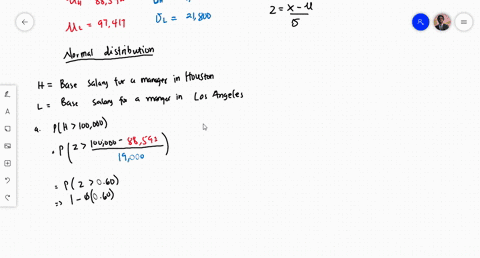 μH 88,592
μL = 97,417 σL = 21,800
z = x - μ / σ
Normal distribution
H = Base salary for a manger in Houston
L = Base salary for a manger in Los Angeles
a. P(H > 100,000)
= P(Z > 100,000 - 88,592 / 19,000)
= P(Z > 0.60)
=> 1 - Φ(0.60)